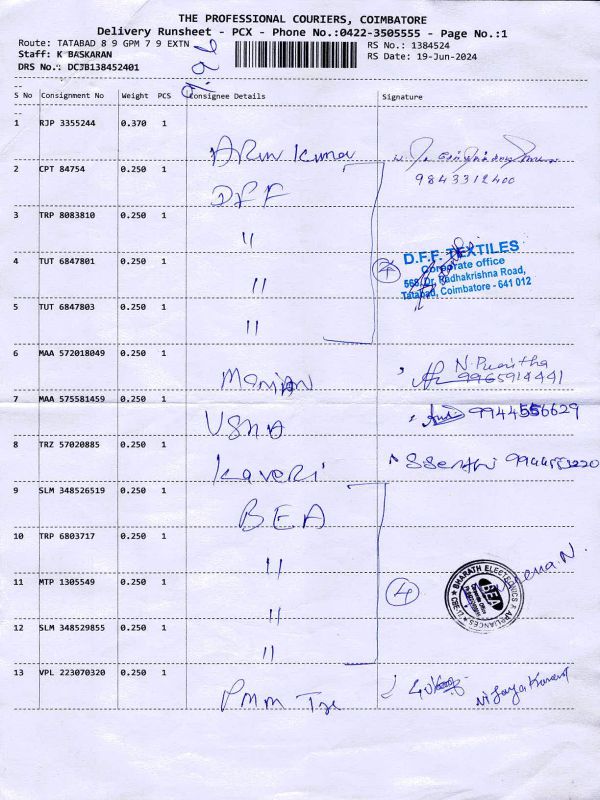 THE PROFESSIONAL COURIERS, COIMBATORE
Delivery Runsheet - PCX - Phone No.:0422-3505555 - Page No.:1
Route: TATABAD 8 9 GPM 7 9 EXTN
RS No.: 1384524
Staff: K BASKARAN
RS Date: 19-Jun-2024
DRS No.: DCJB138452401
S No Consignment No Weight PCS Consignee Details Signature
1 RJP 3355244 0.370 1
Arun Kumar
9843312400
2 CPT 84754 0.250 1
DFF
3 TRP 8083810 0.250 1
"
4 TUT 6847801 0.250 1
"
4
D.F.F. TEXTILES
Corporate office
568, Dr. Radhakrishna Road,
Tatabad, Coimbatore - 641 012
5 TUT 6847803 0.250 1
"
6 MAA 572018049 0.250 1
Manian
N. Punitha
9965914441
7 MAA 575581459 0.250 1
USHA
9944556629
8 TRZ 57020885 0.250 1
Kaveri
S.Senthi
9 SLM 348526519 0.250 1
BEA
10 TRP 6803717 0.250 1
"
11 MTP 1305549 0.250 1
"
4
BHARATH ELECTRONICS & APPLIANCES
BEA
12 SLM 348529855 0.250 1
"
13 VPL 223070320 0.250 1
PMM